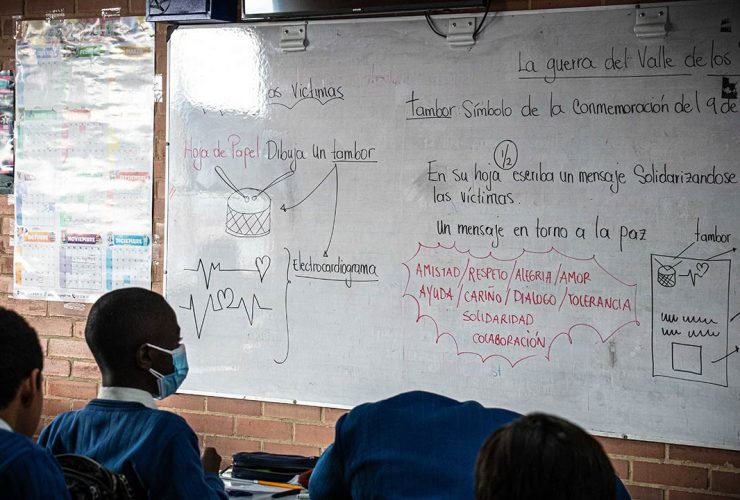 La guerra del Valle de los
as Víctimas
tambor: Símbolo de la Conmemoración del 9 de
Hoja de Papel Dibuja un tambor
1/2
En su hoja escriba un mensaje Solidarizandose
las víctimas.
Un mensaje en torno a la paz
tambor
Electrocardiograma
AMISTAD/RESPETO/ALEGRIA/AMOR
AYUDA/CARIÑO/DIALOGO/TOLERANCIA
SOLIDARIDAD
COLABORACIÓN
NOVIEMBRE
DICIEMBRE